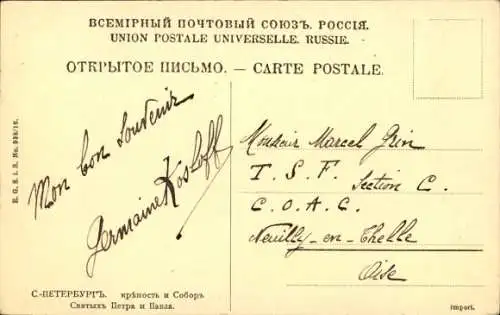 ВСЕМІРНЫЙ ПОЧТОВЫЙ СОЮЗЪ. РОССІЯ.
UNION POSTALE UNIVERSELLE. RUSSIE.
ОТКРЫТОЕ ПИСЬМО. — CARTE POSTALE.
Mon bon souvenir
Germaine Kosloff
Monsieur Marcel Grin
T. S. F.
Section C.
C. O. A. C.
Neuilly-en-Thelle
Oise
С.-ПЕТЕРБУРГЪ. крѣпость и Соборъ
Святыхъ Петра и Павла.
Import.